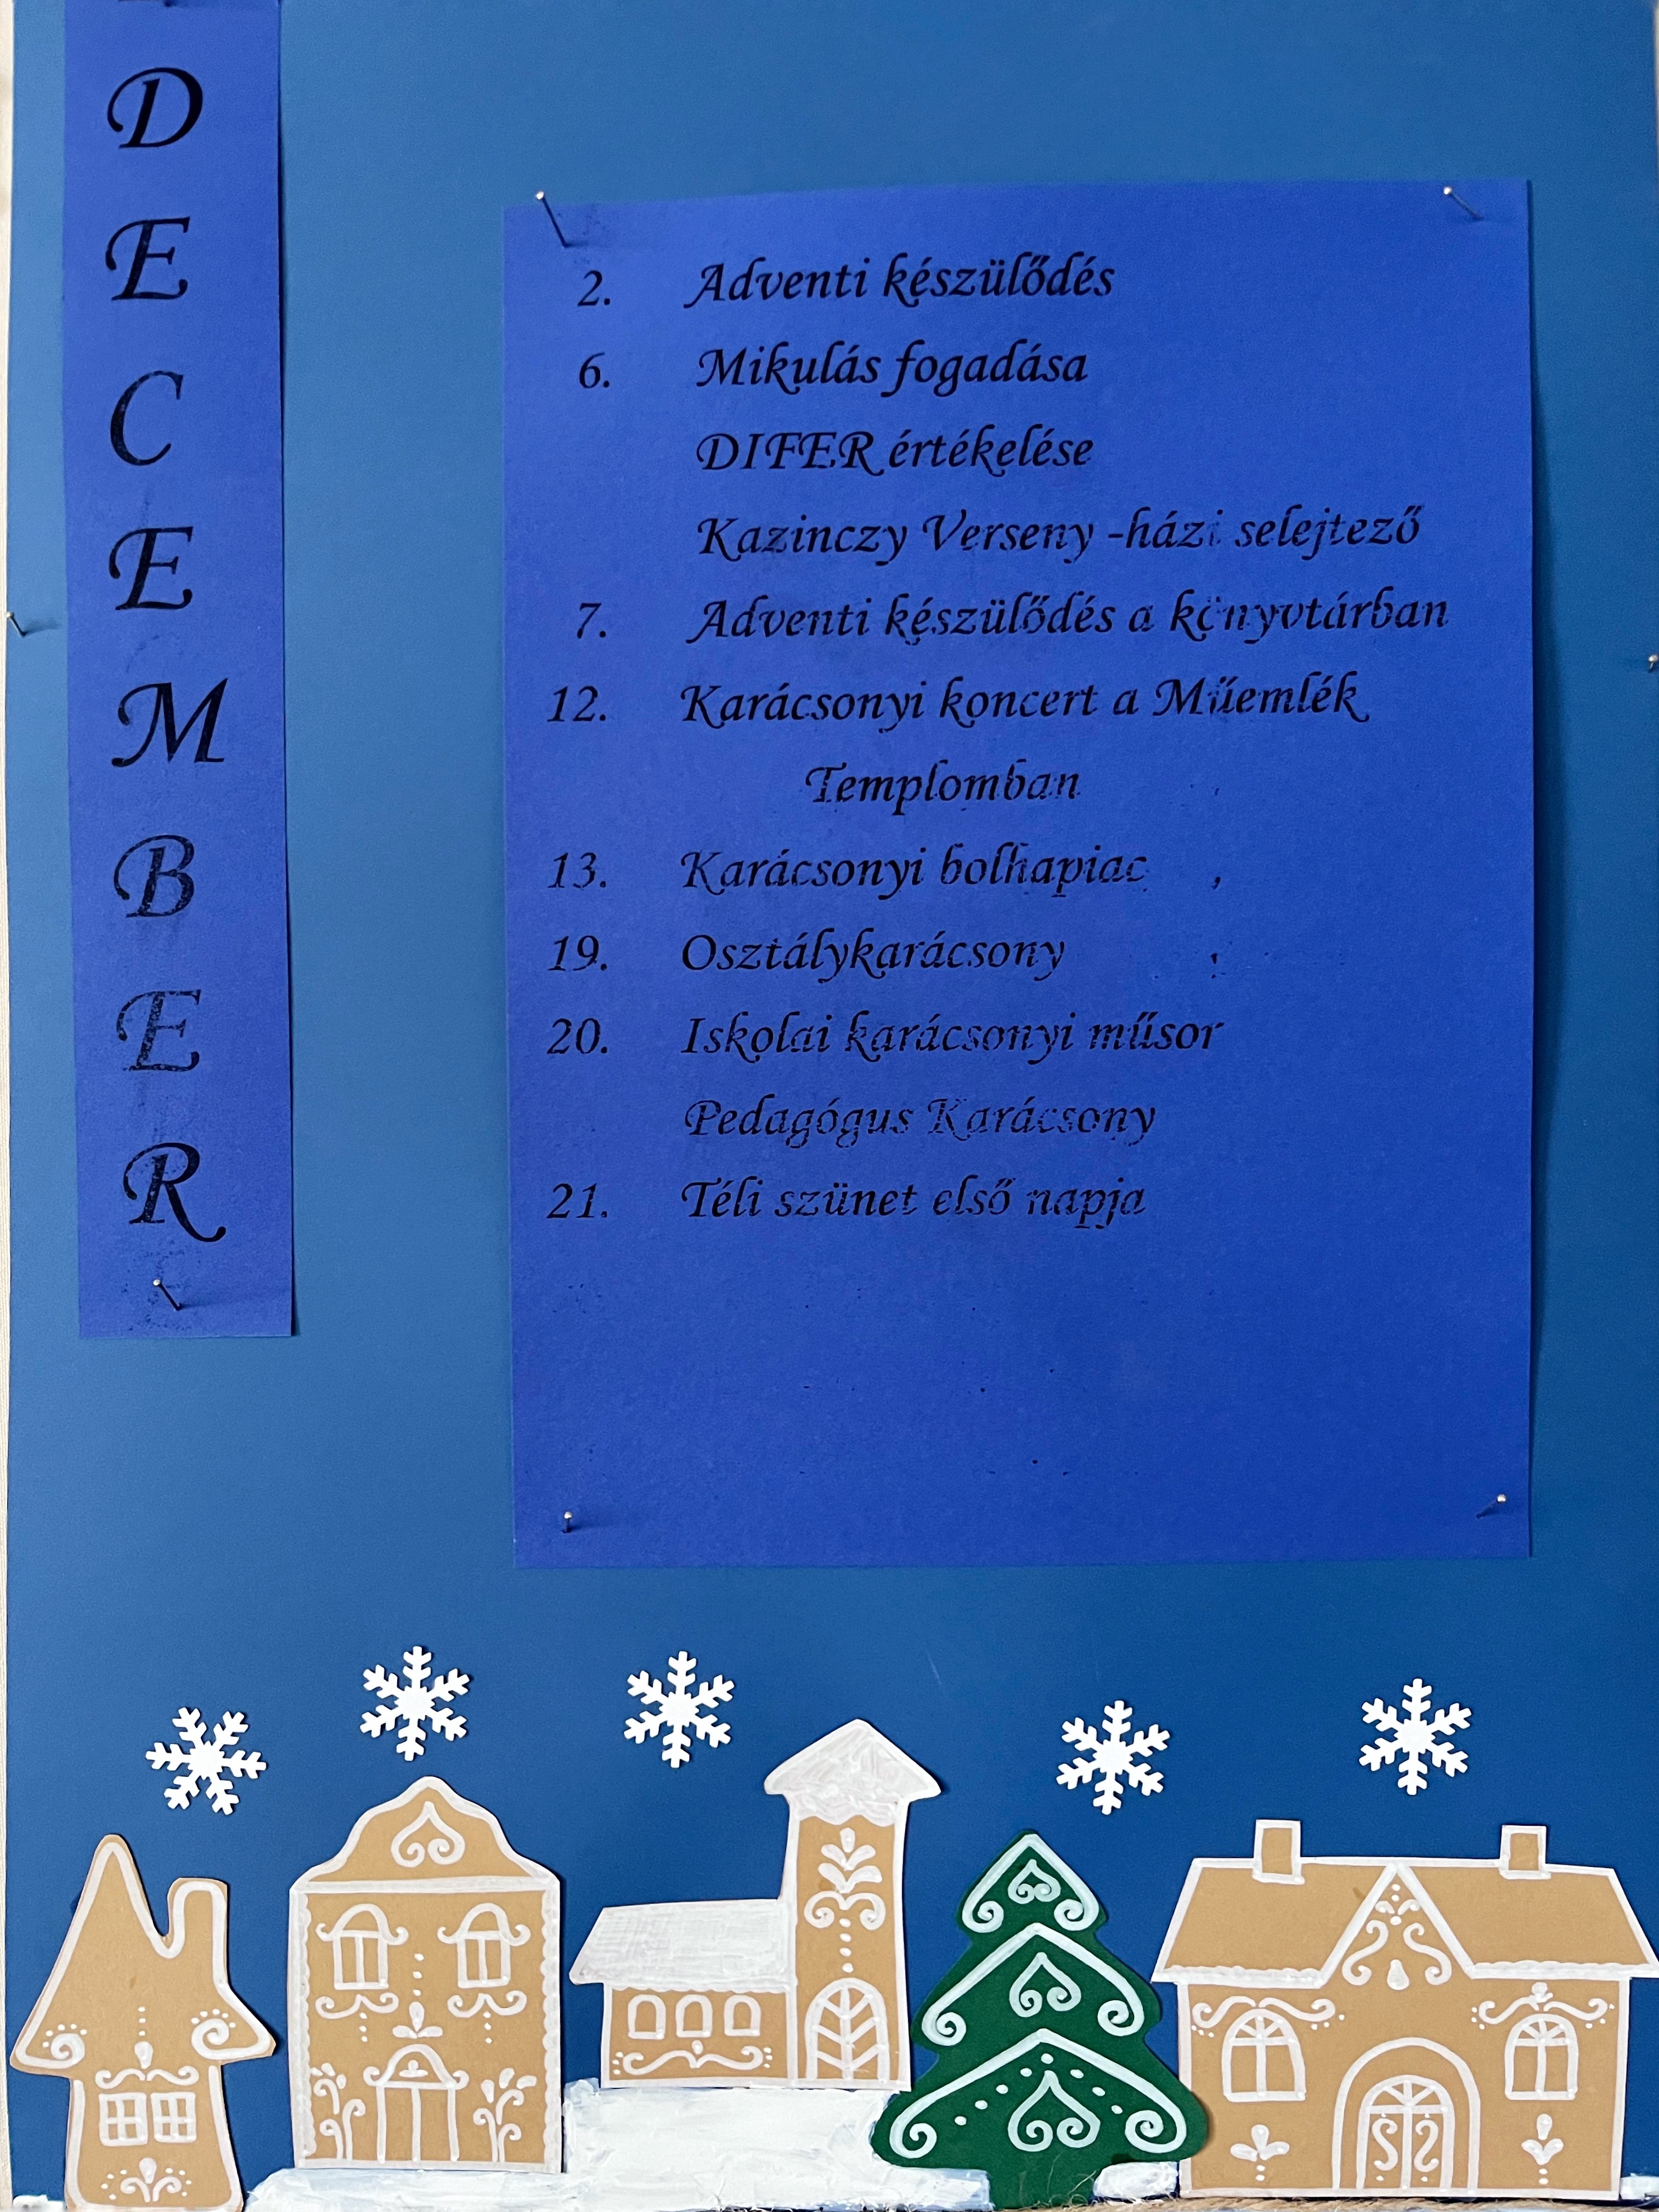 DECEMBER
2. Adventi készülődés
6. Mikulás fogadása
DIFER értékelése
Kazinczy Verseny -házi selejtező
7. Adventi készülődés a könyvtárban
12. Karácsonyi koncert a Műemlék
Templomban
13. Karácsonyi bolhapiac
19. Osztálykarácsony
20. Iskolai karácsonyi műsor
Pedagógus Karácsony
21. Téli szünet első napja